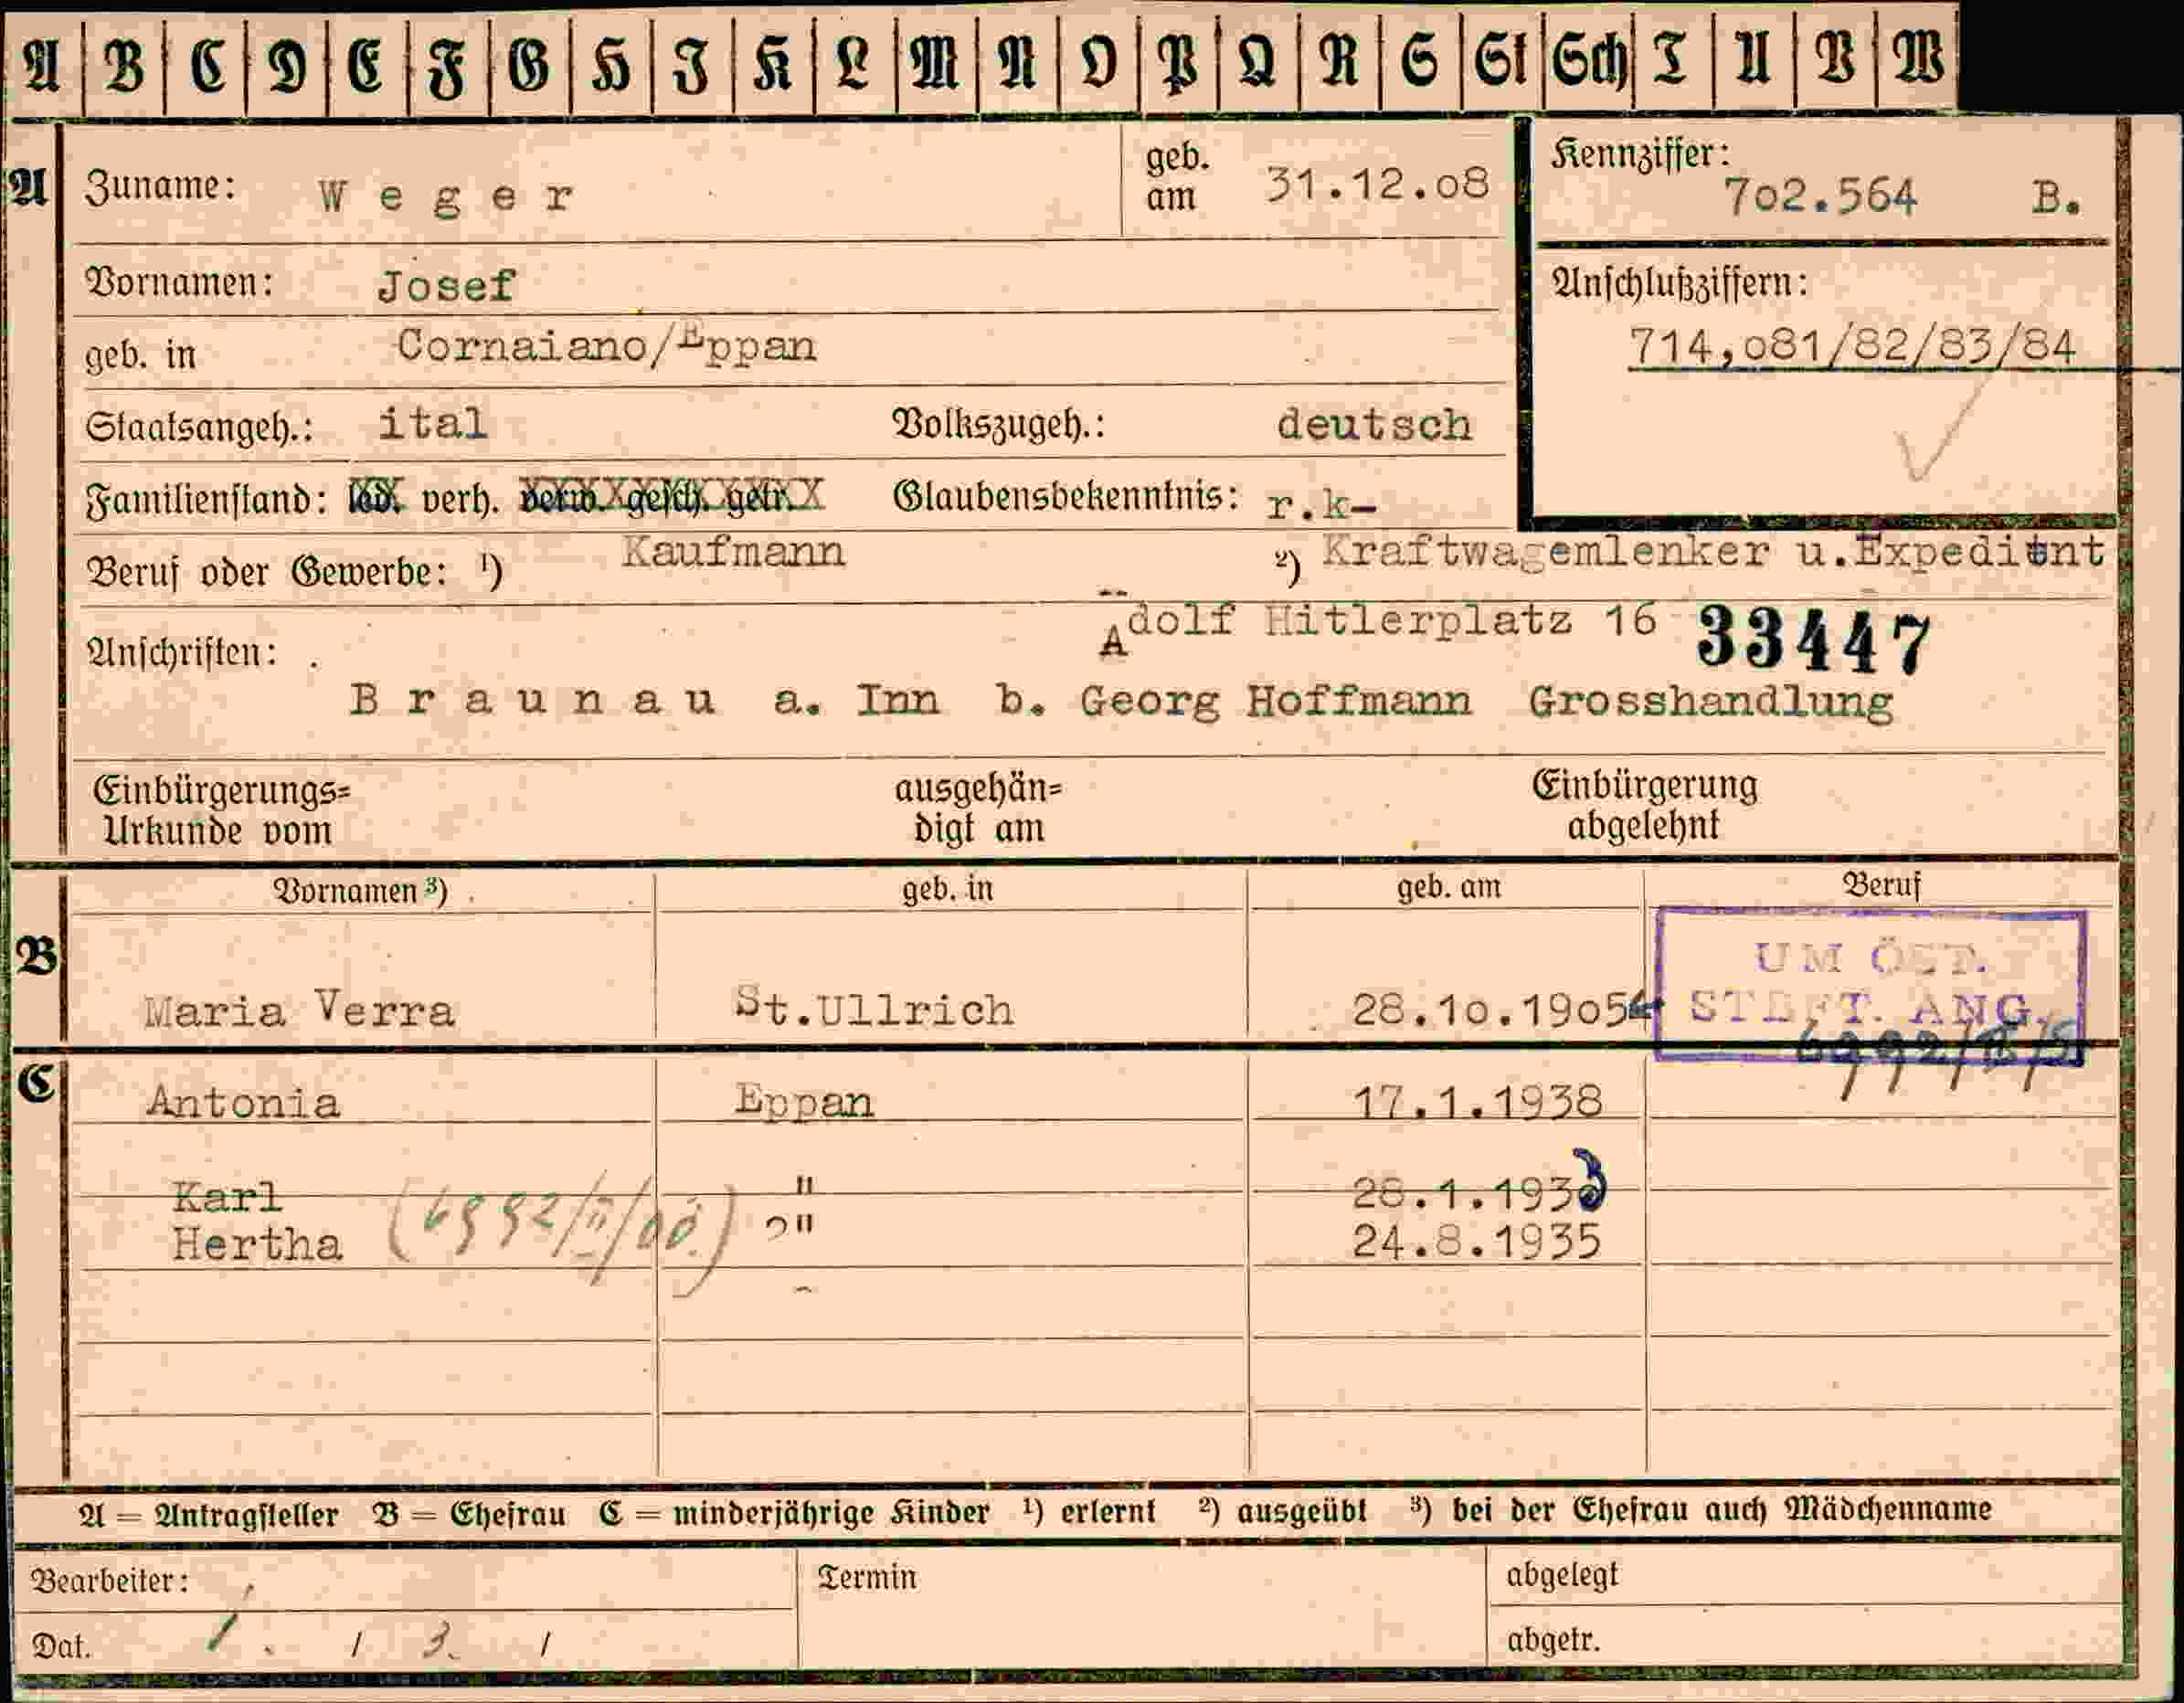 A B C D E F G H I K L M N O P Q R S St Sch T U V W
A Zuname: W e g e r geb. am 31.12.o8 Kennziffer: 7o2.564 B.
Vornamen: Josef Anschlußziffern:
geb. in Cornaiano/Eppan 714,o81/82/83/84
Staatsangeh.: ital Volkszugeh.: deutsch
Familienstand: led. verh. verw. gesch. getr. Glaubensbekenntnis: r.k-
Beruf oder Gewerbe: ¹) Kaufmann ²) Kraftwagemlenker u.Expeditnt
Adolf Hitlerplatz 16 33447
Anschriften:
B r a u n a u a. Inn b. Georg Hoffmann Grosshandlung
Einbürgerungs= ausgehän= Einbürgerung
Urkunde vom digt am abgelehnt
Vornamen ³) geb. in geb. am Beruf
UM ÖST.
B Maria Verra St.Ullrich 28.10.19054 STBFT. ANG.
C Antonia Eppan 17.1.1938
Karl " 28.1.1933
Hertha (6992/II/00.) " 24.8.1935
A = Antragsteller B = Ehefrau C = minderjährige Kinder ¹) erlernt ²) ausgeübt ³) bei der Ehefrau auch Mädchenname
Bearbeiter: Termin abgelegt
Dat. 1. / 3. / abgetr.